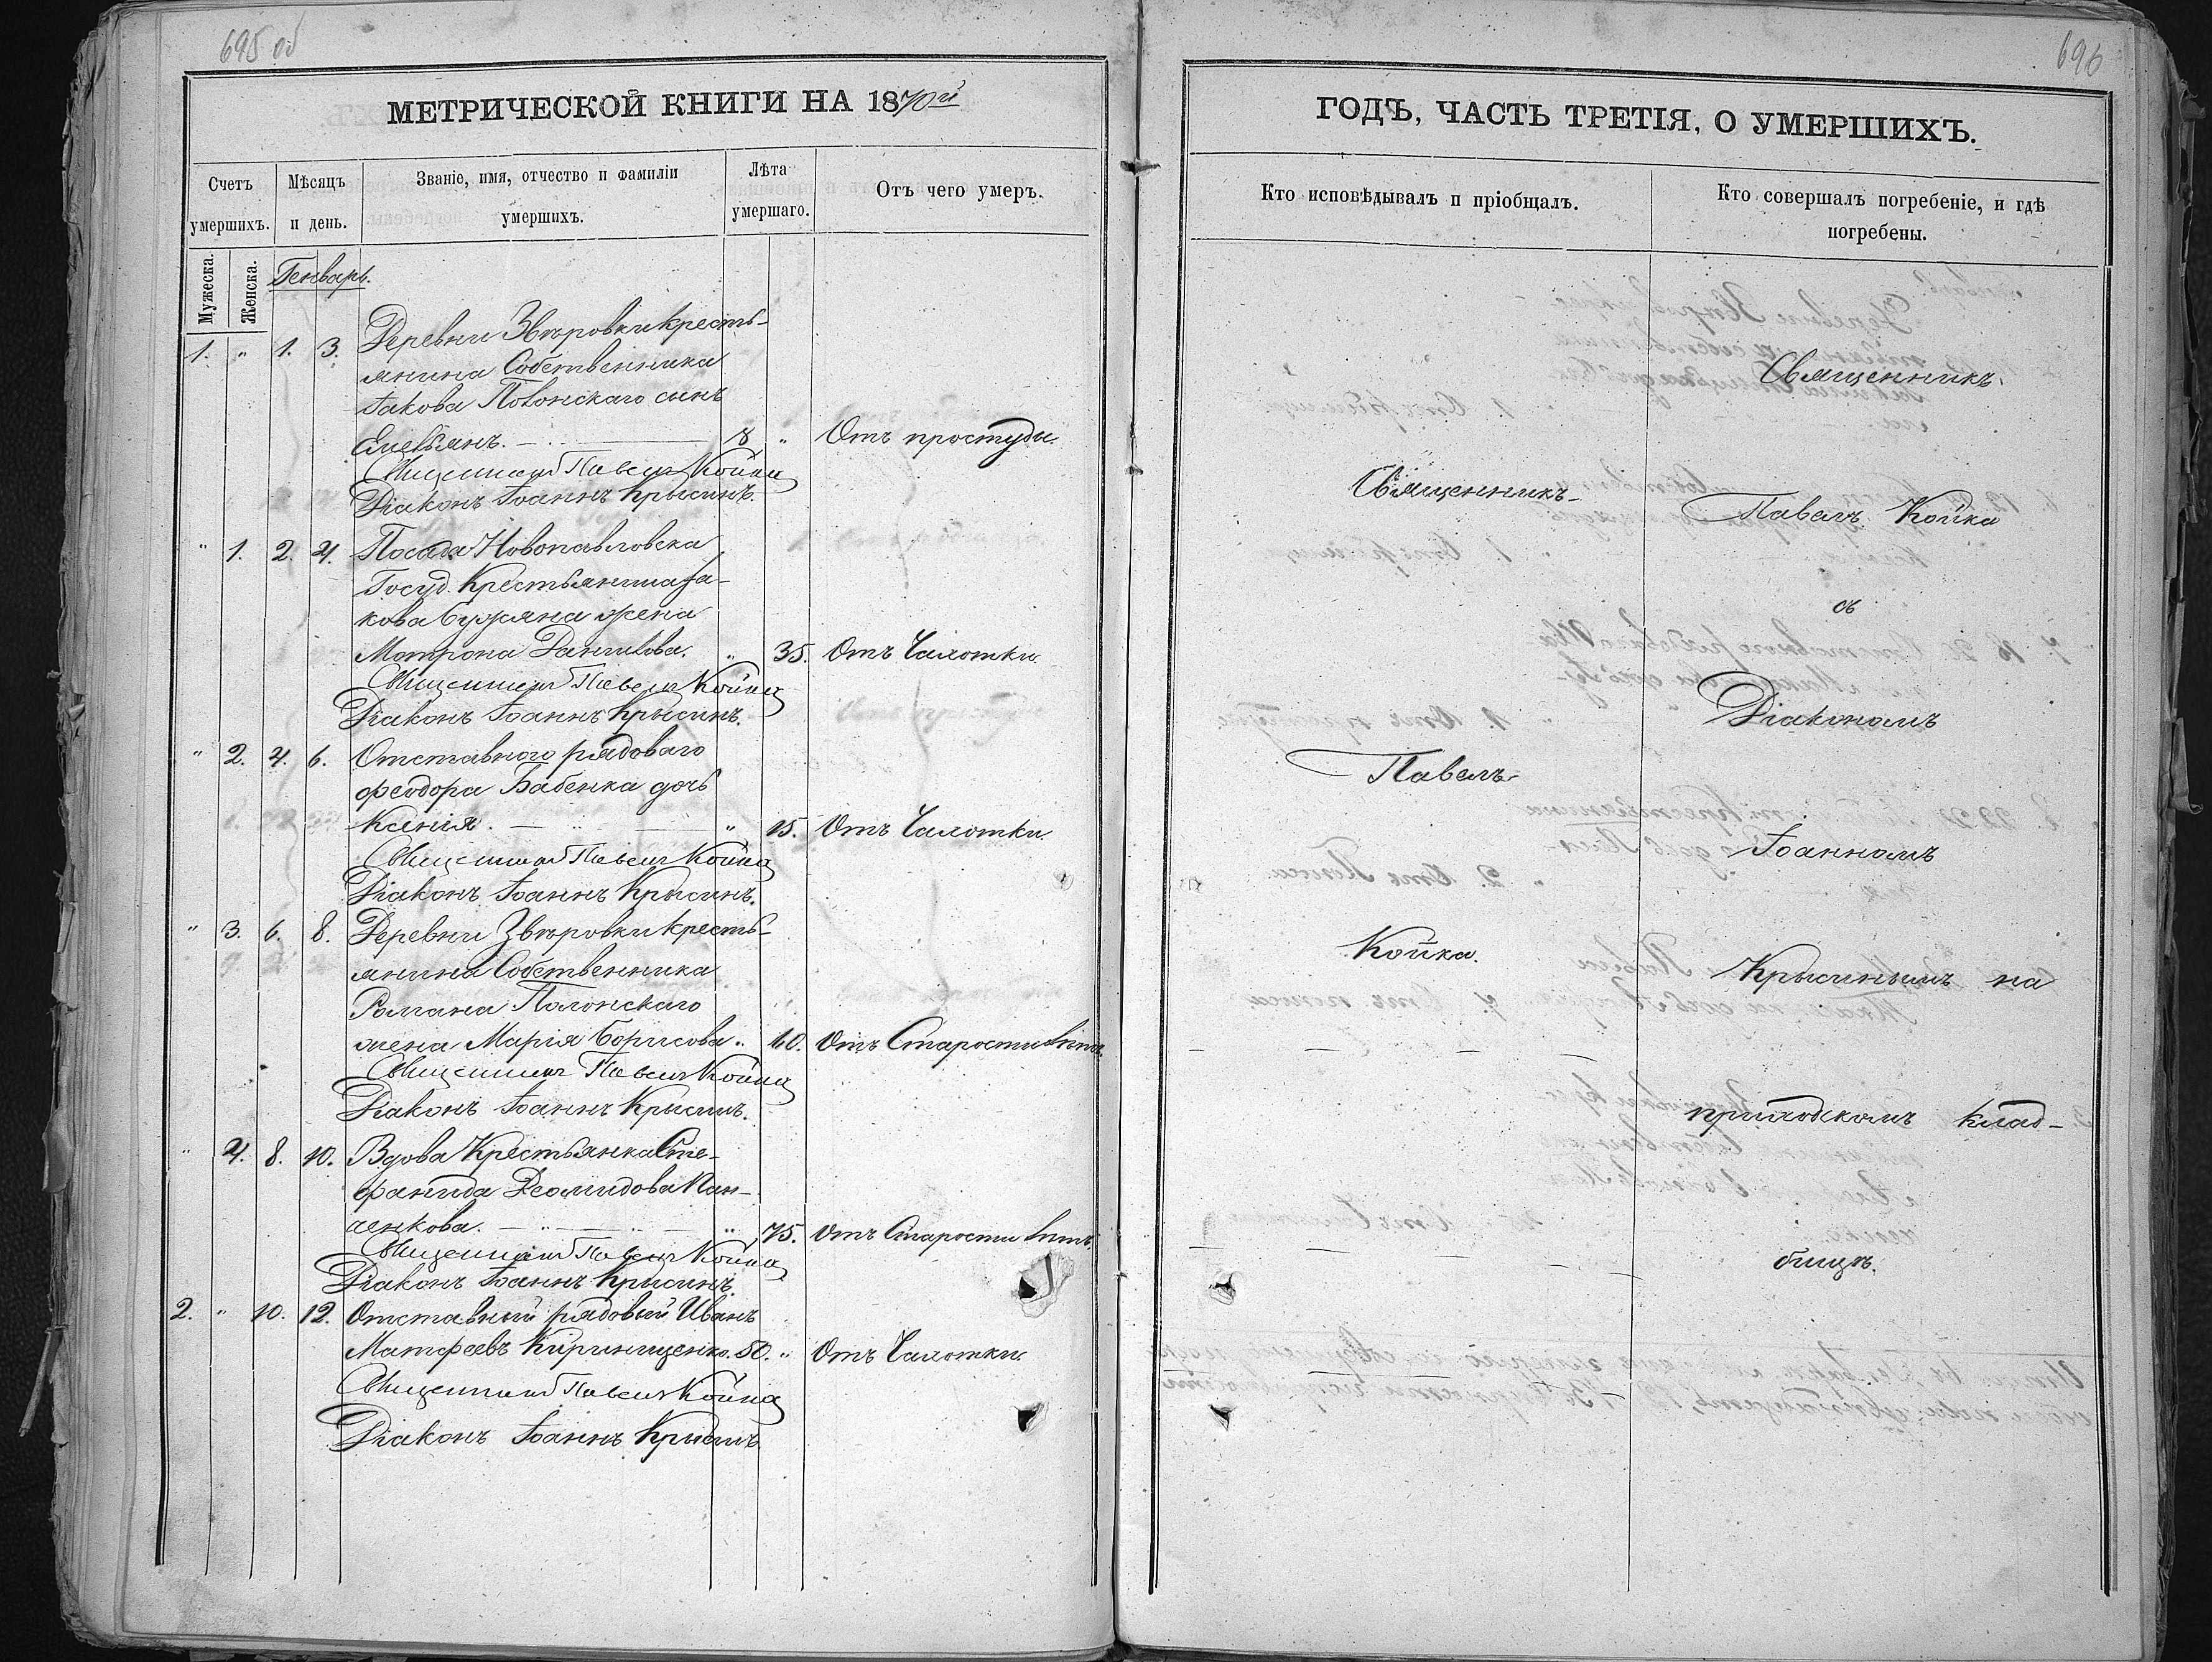 695 об
МЕТРИЧЕСКОЙ КНИГИ НА 1870й
Счетъ умершихъ.
Мѣсяцъ и день.
Званіе, имя, отчество и фамиліи умершихъ.
Лѣта умершаго.
Отъ чего умеръ.
Мужеска.
Женска.
Генварь.
1. " 1. 3. Деревни Звѣровки кресть-
янина Собственника
Іакова Полонскаго сынъ
Емельянъ. 8 " Отъ простуды.
Священникъ Павелъ Койка
Діаконъ Іоаннъ Крысинъ.
" 1. 2. 4. Посада Новопавловска
Госуд. Крестьянина Іа-
кова Бужана жена
Мотрона Данилова. " 35. Отъ Чахотки.
Священникъ Павелъ Койка
Діаконъ Іоаннъ Крысинъ.
" 2. 4. 6. Отставного рядоваго
Феодора Бабенка дочь
Ксенія. " 15. Отъ Чахотки.
Священникъ Павелъ Койка
Діаконъ Іоаннъ Крысинъ.
" 3. 6. 8. Деревни Звѣровки кресть-
янина Собственника
Романа Полонскаго
жена Марія Борисова. " 60. Отъ Старости лѣтъ.
Священникъ Павелъ Койка
Діаконъ Іоаннъ Крысинъ.
" 4. 8. 10. Вдова Крестьянка Сте-
фанида Деомидова Пан-
ченкова. " 75. Отъ Старости лѣтъ.
Священникъ Павелъ Койка
Діаконъ Іоаннъ Крысинъ.
2. " 10. 12. Отставный рядовый Иванъ
Матфеевъ Кириниценко. 50. " Отъ Чахотки.
Священникъ Павелъ Койка
Діаконъ Іоаннъ Крысинъ.
696
ГОДЪ, ЧАСТЬ ТРЕТІЯ, О УМЕРШИХЪ.
Кто исповѣдывалъ и пріобщалъ.
Кто совершалъ погребеніе, и гдѣ погребены.
Священникъ
Павелъ
Койка.
Священникъ
Павелъ Койка
съ
Діакономъ
Іоанномъ
Крысинымъ на
приходскомъ клад-
бищѣ.